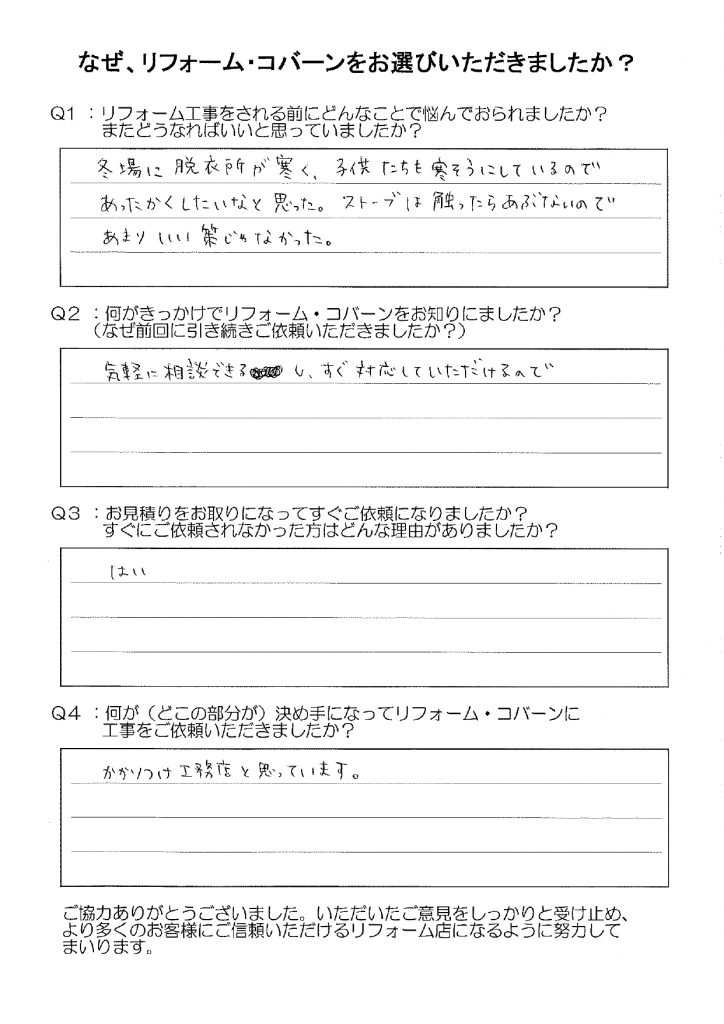 なぜ、リフォーム・コバーンをお選びいただきましたか？
Q1 ：リフォーム工事をされる前にどんなことで悩んでおられましたか？
またどうなればいいと思っていましたか？
冬場に脱衣所が寒く、子供たちも寒そうにしているので
あったかくしたいなと思った。ストーブは触ったらあぶないので
あまりいい策じゃなかった。
Q2 ：何がきっかけでリフォーム・コバーンをお知りにましたか？
（なぜ前回に引き続きご依頼いただきましたか？）
気軽に相談できるし、すぐ対応していただけるので
Q3 ：お見積りをお取りになってすぐご依頼になりましたか？
すぐにご依頼されなかった方はどんな理由がありましたか？
はい
Q4 ：何が（どこの部分が）決め手になってリフォーム・コバーンに
工事をご依頼いただきましたか？
かかりつけ工務店と思っています。
ご協力ありがとうございました。いただいたご意見をしっかりと受け止め、
より多くのお客様にご信頼いただけるリフォーム店になるように努力して
まいります。